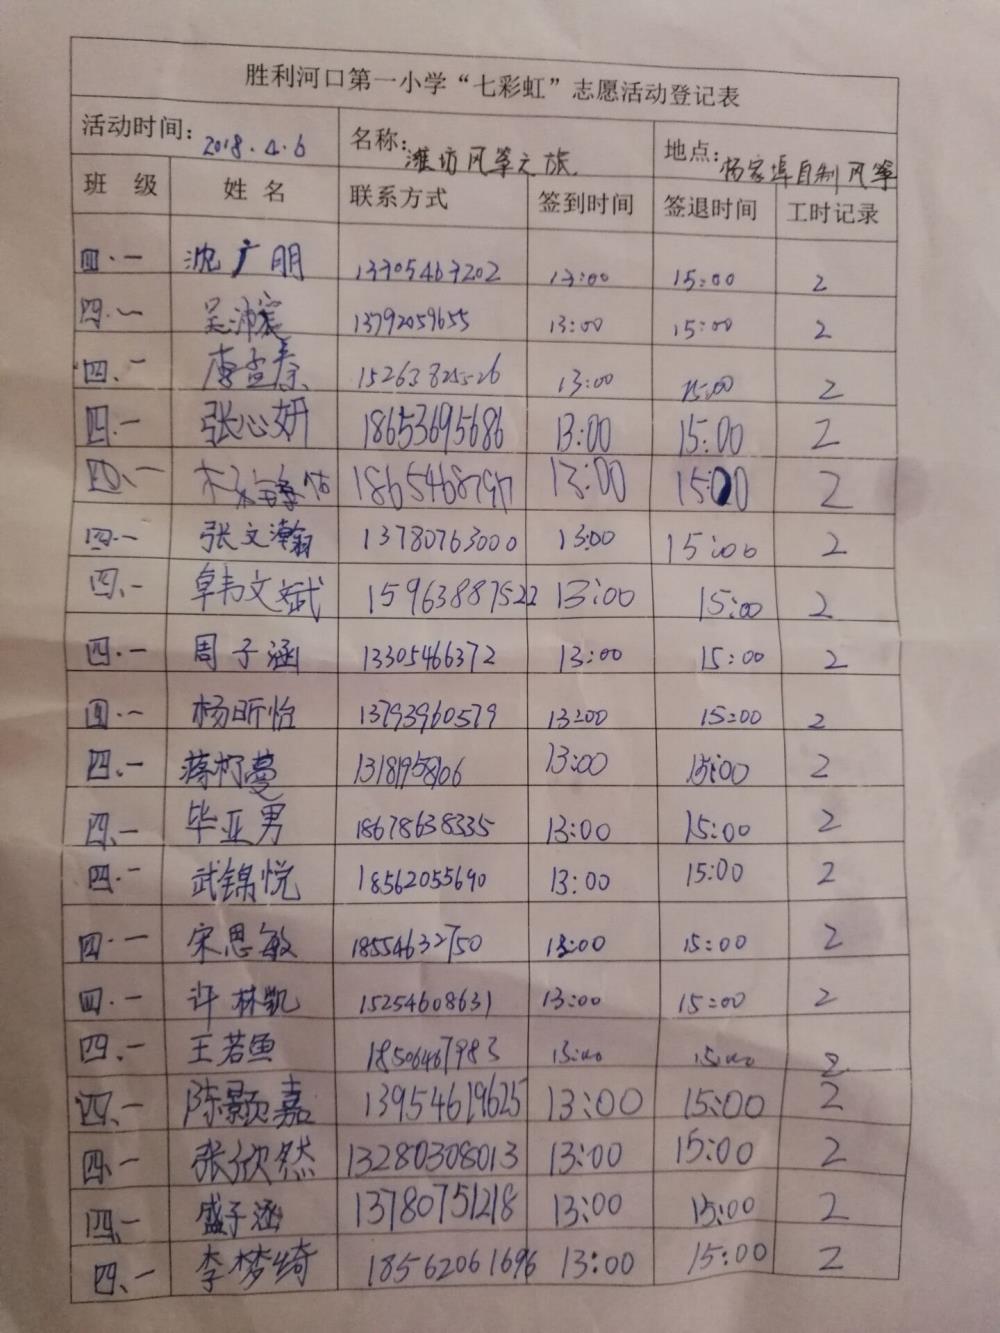 胜利河口第一小学“七彩虹”志愿活动登记表
活动时间：2018.4.6 名称：潍坊风筝之旅 地点：杨家埠自制风筝
班 级 姓 名 联系方式 签到时间 签退时间 工时记录
四.一 沈广明 13705467202 13:00 15:00 2
四.一 吴沛宸 13792059655 13:00 15:00 2
四、一 15263825526 13:00 15:00 2
四.一 张心妍 18653695686 13:00 15:00 2
四、一 13:00 15:00 2
四.一 张文瀚 13780763000 13:00 15:00 2
四、一 韩文斌 15963887522 13:00 15:00 2
四.一 周子涵 13305466372 13:00 15:00 2
四.一 杨昕怡 13793960579 13:00 15:00 2
四、一 蒋柯蔓 13:00 15:00 2
四、一 毕亚男 18678638335 13:00 15:00 2
四.一 武锦悦 18562055690 13:00 15:00 2
四.一 宋思敏 18554632750 13:00 15:00 2
四.一 许林凯 15254608631 13:00 15:00 2
四、一 王若鱼 18506467983 13:00 15:00 2
四、一 陈颢嘉 13954619625 13:00 15:00 2
四、一 张欣然 13280308013 13:00 15:00 2
四、一 盛子涵 13780751218 13:00 15:00 2
四、一 李梦绮 18562061696 13:00 15:00 2